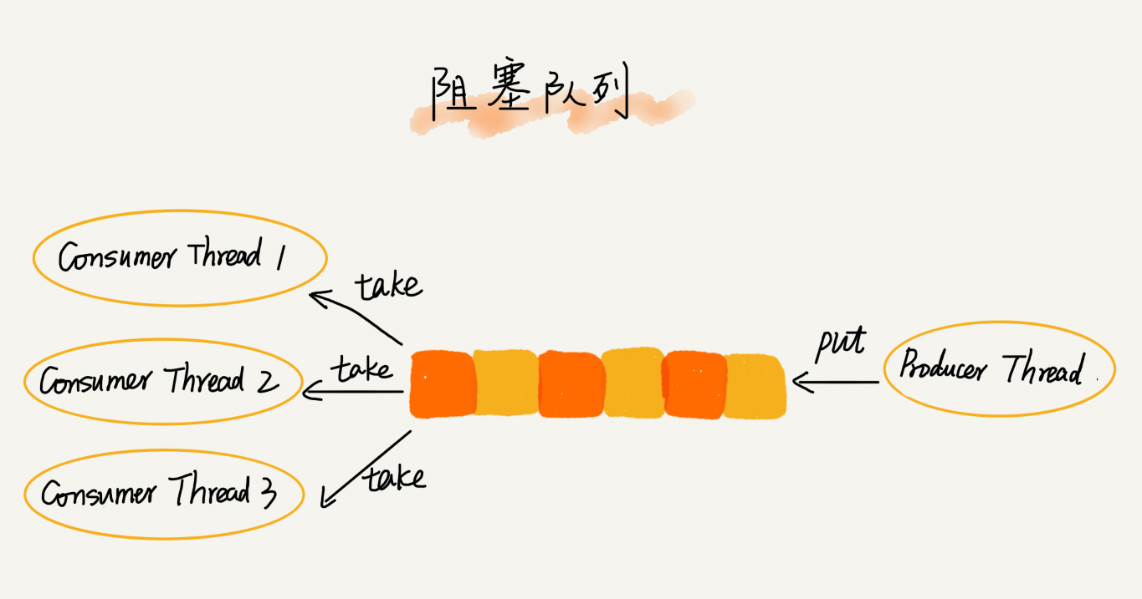 阻塞队列
Consumer Thread 1
take
Consumer Thread 2
take
Consumer Thread 3
take
put
Producer Thread